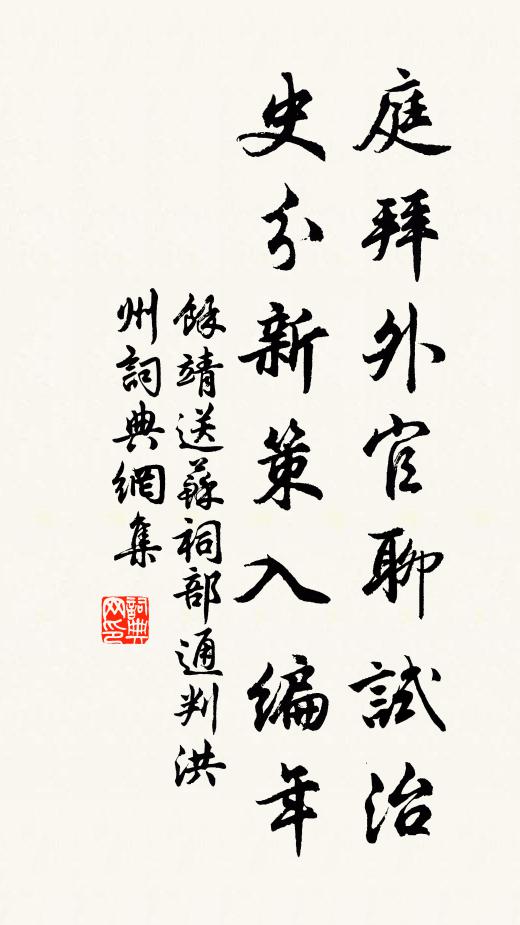 庭拜外官聊試治
史分新策入編年
餘靖送蘇祠部通判洪
州詞典網集
詞典網印